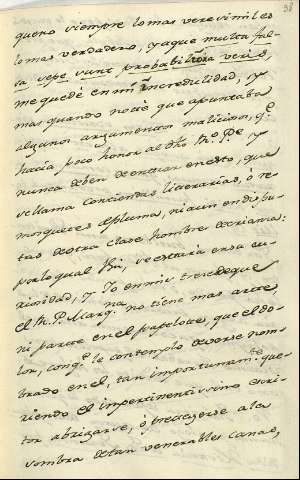 38
que no siempre lo mas verosimil es
lo mas verdadero, ya que multa fal-
sa sepe sunt probabiliora veris,
me quedé en mi incredulidad, y
mas quando noté que apuntaba
algunos argumentos maliciosos, qe.
hacia poco honor al dho Rº. Pe. y
nunca deben de entrar en esto, que
se llama contiendas literarias, ó re-
moquetes de pluma, ni aun en dispu-
tas de otra clase hombre de crianza:
por lo qual se estaria en su cu-
riosidad, y Yo en mis trece de que
el R. P. Marqna. no tiene mas arte,
ni parte en el papelote, que el do-
lor, con qe. le contemplo de verse nom-
brado en el, tan importunamte. que-
riendo el impertinentisimo Escri-
tor abrigarse, ó guarecerse a la
sombra de tan venerables canas,